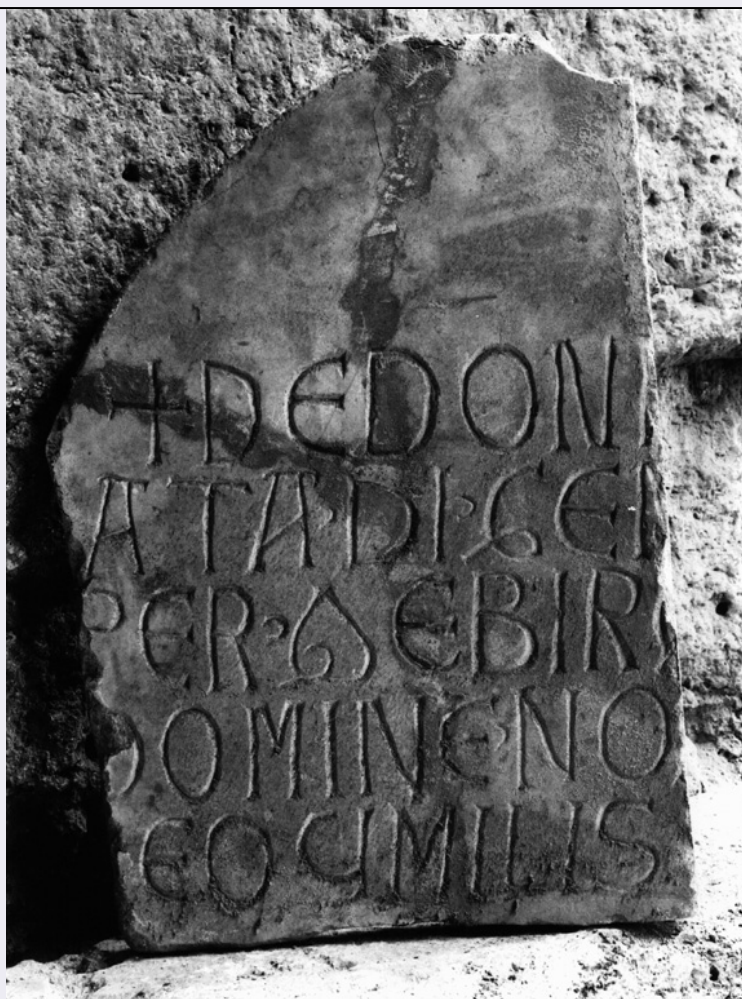 + DEDONI
ATA·DI·GEN
PER·AEBIRG
DOMINENO
EOQMILIS